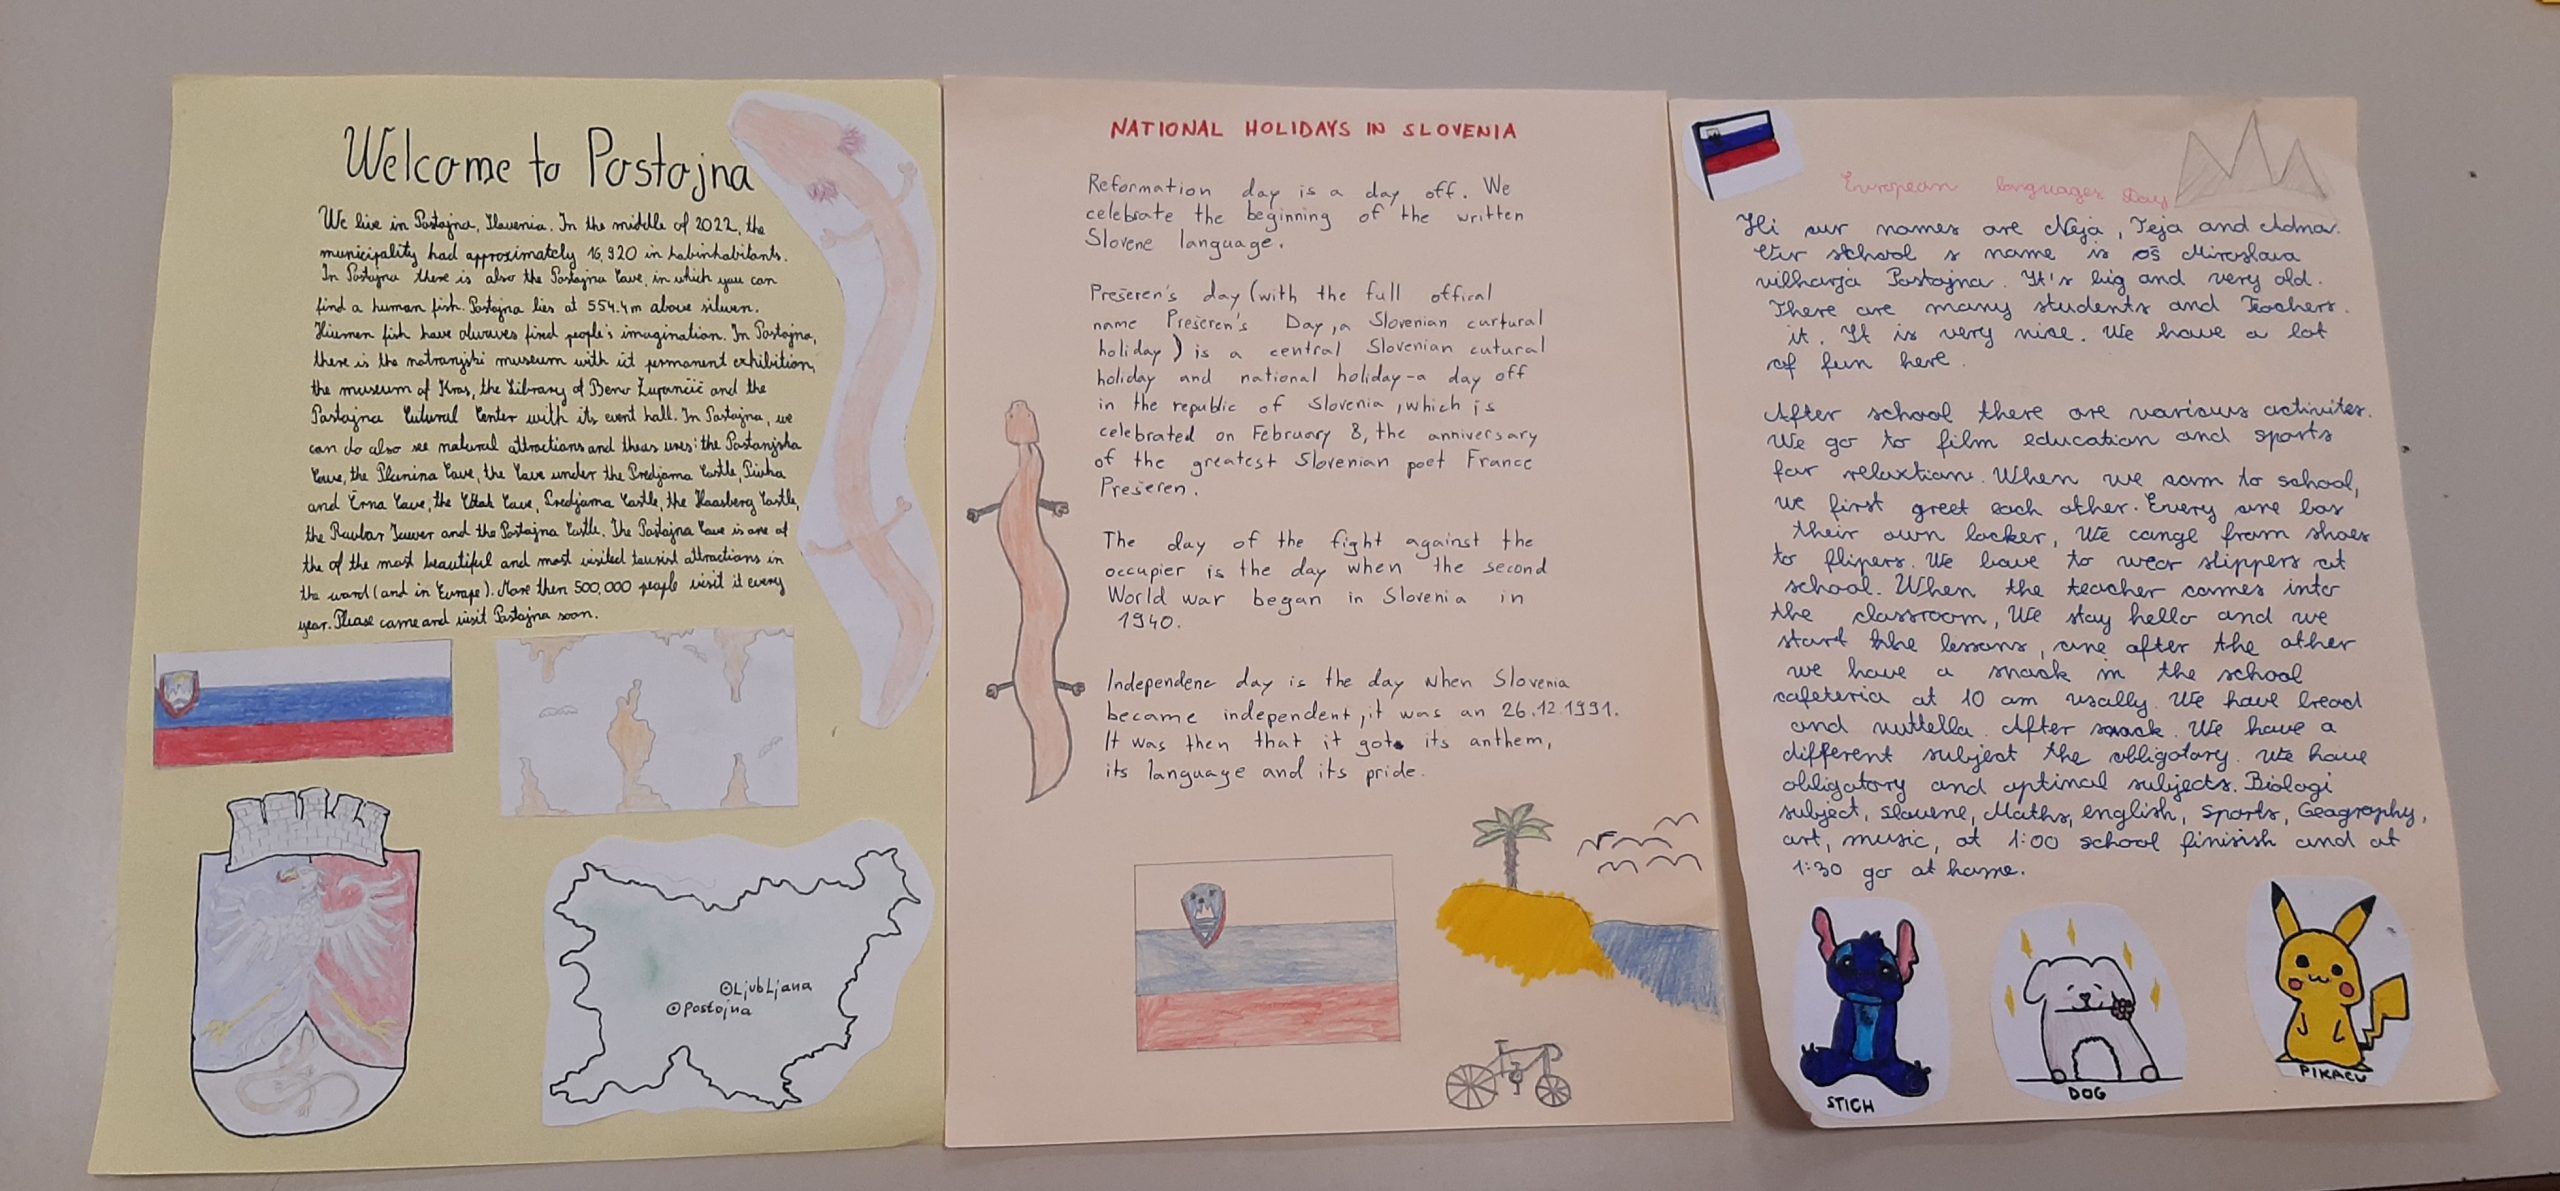 Welcome to Postojna
We live in Postojna, Slovenia. In the middle of 2022, the
municipality had approximately 16,920 in habinhabitants.
In Postojna there is also the Postojna Cave, in which you can
find a human fish. Postojna lies at 554.4m above
fish have fired people's imagination. In Postojna,
there is the notranjski museum with permanent exhibition,
the museum of Kras, the Library of Beno Zupančič and the
Postojna Cutural Center with its event hall. In Postojna, we
can do also see natural attractions and the
Cave, the Planina Cave, the Cave under the Predjama Castle, Pivka
and Črna Cave, the Cave, Predjama Castle, the Haasberg Castle,
the Ravbar Tower and the Postojna Castle. The Postojna Cave is one of
the of the most beautiful and most visited tourist attractions in
the word (and in Europe). More then 500,000 people visit it every
year. Please come and visit Postojna soon.
OLjubLjana
Postojna
NATIONAL HOLIDAYS IN SLOVENIA
Reformation day is a day off. We
celebrate the beginning of the written
Slovene language.
Prešeren's day (with the full offical
name Prešeren's Day, a Slovenian curtural
holiday) is a central Slovenian cutural
holiday and national holiday-a day off
in the republic of Slovenia, which is
celebrated on February 8, the anniversary
of the greatest Slovenian poet France
Prešeren.
The day of the fight against the
occupier is the day when the second
World war began in Slovenia in
1940.
Independenc day is the day when Slovenia
became independent, it was an 26.12.1991.
It was then that it got its anthem,
its language and its pride.
European languages Day
Hi our names are Neja, Teja and
Our school s name is oš Miroslava
vilharja Postojna. It's big and very old.
There are many students and Teachers.
it. It is very nice. We have a lot
of fun here.
After school there are various activites.
We go to film education and sports
for relaxtion. When we com to school,
we first greet each other. Every one has
their own locker, We cange from shoes
to flipers. We have to wear slippers at
school. When the teacher comes into
the classroom, We stay hello and we
start the lessons, one after the other
we have a snack in the school
cafeteria at 10 am usally. We have bread
and nuttella. After snack. We have a
different subject the obligotary. We have
obligatory and optinal subjects. Biologi
subject, slovene, Maths, english, sports, Geagraphy,
art, music, at 1:00 school finisish and at
1:30 go at home.
STICH
DOG
PIKACU